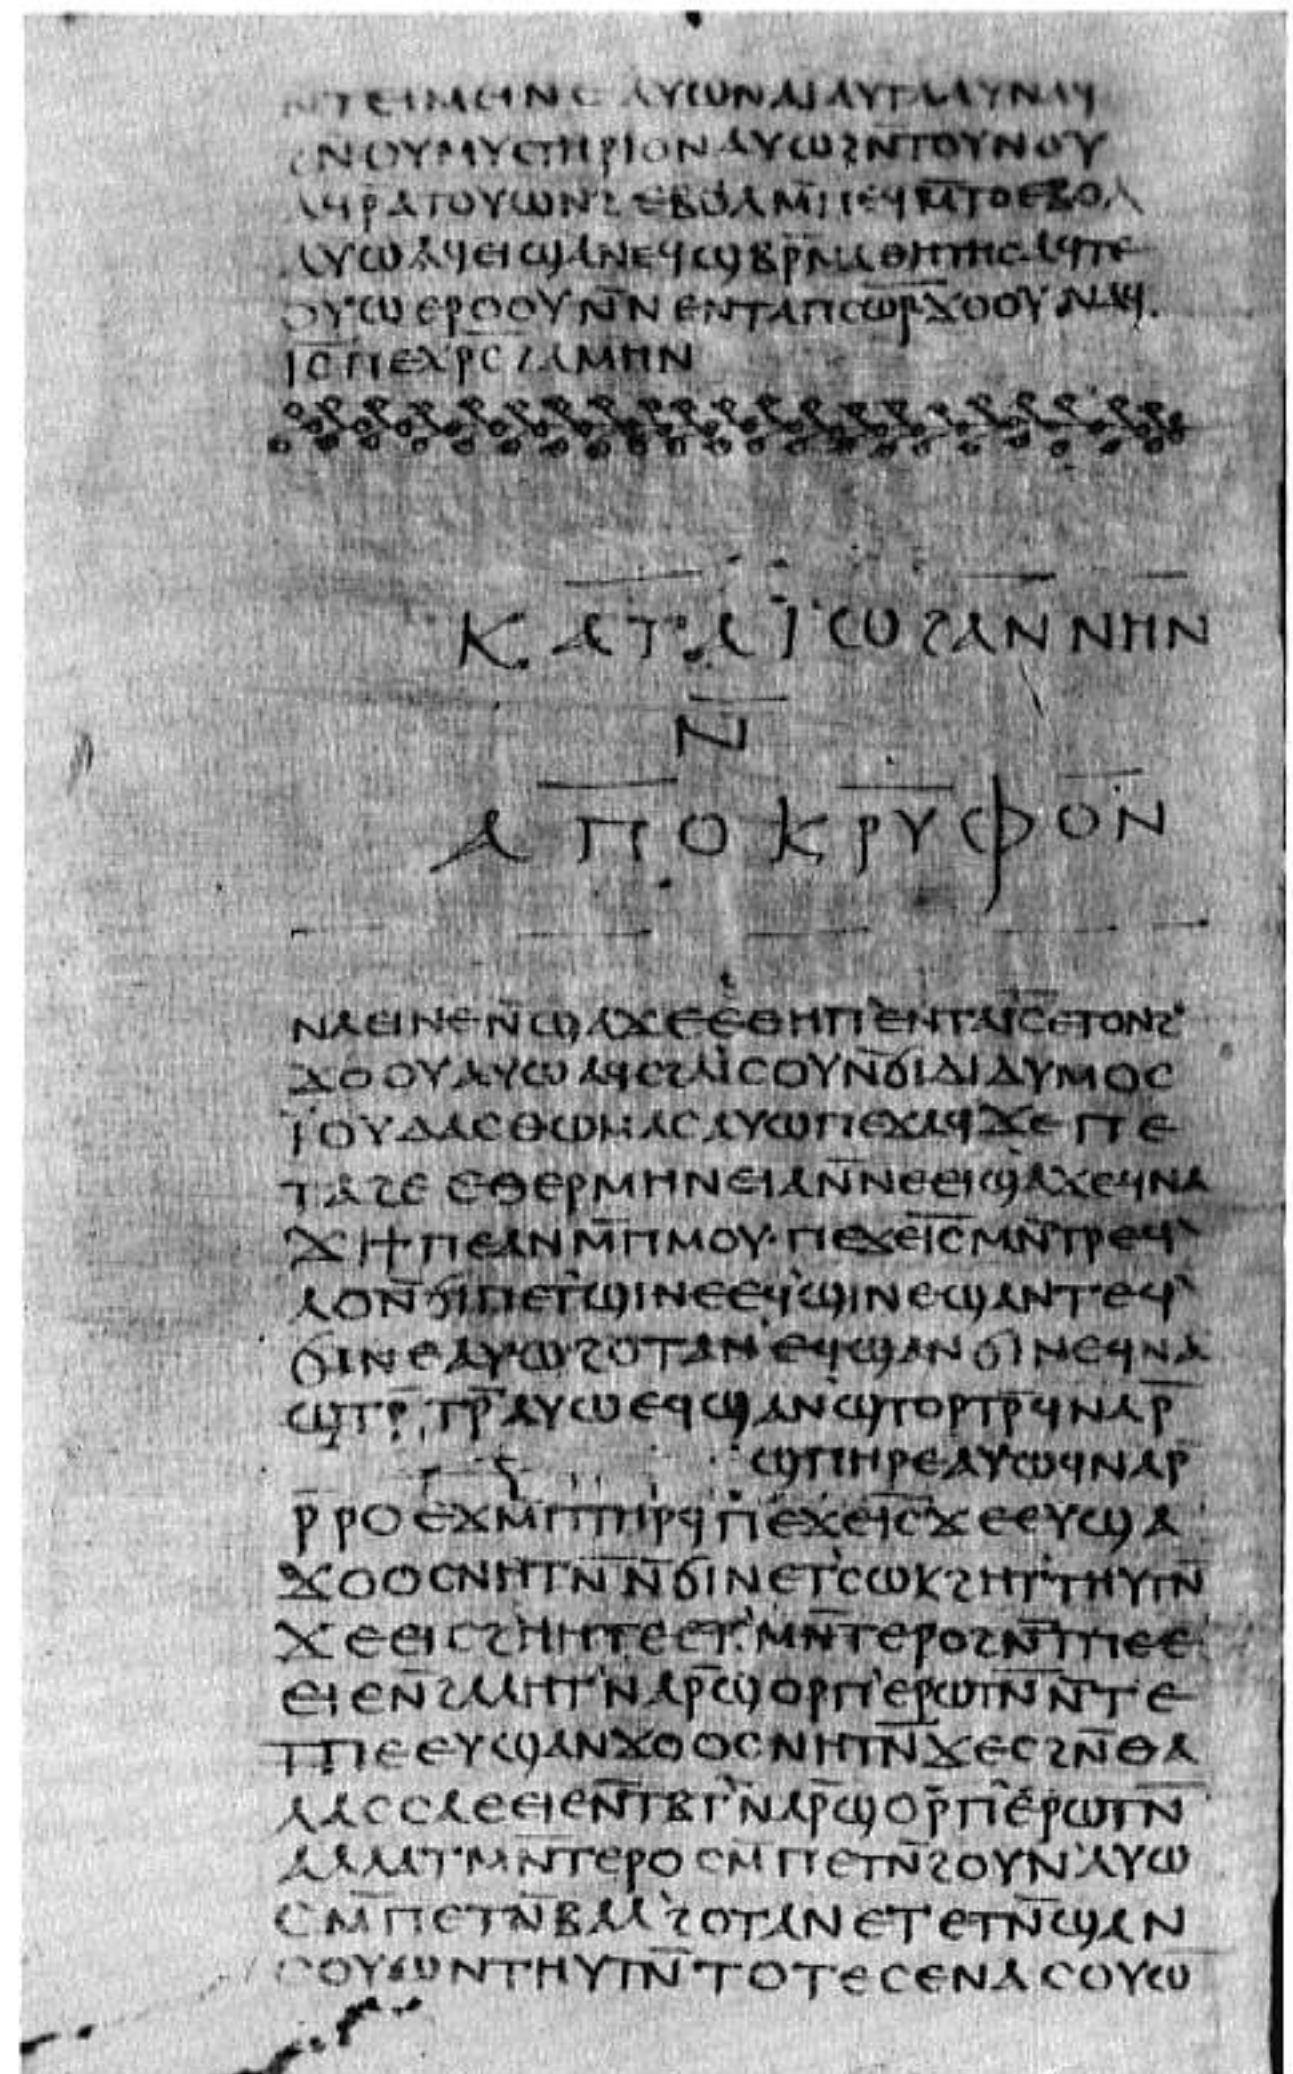 ⲛ̄ⲧⲉⲓⲙⲉⲓⲛⲉ ⲁⲩⲱ ⲛⲁⲓ ⲁⲩⲧⲁⲁⲩ ⲛⲁϥ
ϩⲛ ⲟⲩⲙⲩⲥⲧⲏⲣⲓⲟⲛ ⲁⲩⲱ ϩⲛ̄ ⲧⲟⲩⲛⲟⲩ
ⲁϥⲣ̄ ⲁⲧⲟⲩⲱⲛϩ ⲉⲃⲟⲗ ⲙ̄ⲡⲉϥⲙ̄ⲧⲟ ⲉⲃⲟⲗ
ⲁⲩⲱ ⲁϥⲉⲓ ϣⲁ ⲛⲉϥϣⲃⲣ̄ⲙⲁⲑⲏⲧⲏⲥ ⲁϥⲧⲉ
ⲟⲩⲱ ⲉⲣⲟⲟⲩ ⲛ̄ⲛⲉⲛⲧⲁ ⲡⲥⲱⲣ̄ ϫⲟⲟⲩ ⲛⲁϥ
ⲓ̄ⲥ̄ ⲡⲉⲭⲣ̄ⲥ̄ ϩⲁⲙⲏⲛ
ⲕⲁⲧⲁ ⲓ̈ⲱϩⲁⲛⲛⲏⲛ
ⲛ̄
ⲁⲡⲟⲕⲣⲩⲫⲟⲛ
ⲛⲁⲉⲓ ⲛⲉ ⲛ̄ϣⲁϫⲉ ⲉⲑⲏⲡ ⲉⲛⲧⲁ ⲓ̄ⲥ̄ ⲉⲧⲟⲛϩ
ϫⲟⲟⲩ ⲁⲩⲱ ⲁϥⲥϩⲁⲓⲥⲟⲩ ⲛ̄ϭⲓ ⲇⲓⲇⲩⲙⲟⲥ
ⲓ̈ⲟⲩⲇⲁⲥ ⲑⲱⲙⲁⲥ ⲁⲩⲱ ⲡⲉϫⲁϥ ϫⲉ ⲡⲉ
ⲧⲁϩⲉ ⲉⲑⲉⲣⲙⲏⲛⲉⲓⲁ ⲛ̄ⲛⲉⲉⲓϣⲁϫⲉ ϥⲛⲁ
ϫⲓ ϯⲡⲉ ⲁⲛ ⲙ̄ⲡⲙⲟⲩ· ⲡⲉϫⲉ ⲓ̄ⲥ̄ ⲙⲛ̄ⲧⲣⲉϥ
ⲗⲟ ⲛ̄ϭⲓ ⲡⲉⲧϣⲓⲛⲉ ⲉϥϣⲓⲛⲉ ϣⲁⲛⲧⲉϥ
ϭⲓⲛⲉ ⲁⲩⲱ ϩⲟⲧⲁⲛ ⲉϥϣⲁⲛϭⲓⲛⲉ ϥⲛⲁ
ϣⲧⲣ̄ⲧⲣ̄ ⲁⲩⲱ ⲉϥϣⲁⲛϣⲧⲟⲣⲧⲣ̄ ϥⲛⲁⲣ̄
ϣⲡⲏⲣⲉ ⲁⲩⲱ ϥⲛⲁⲣ̄
ⲣ̄ⲣⲟ ⲉϫⲙ̄ ⲡⲧⲏⲣϥ ⲡⲉϫⲉ ⲓ̄ⲥ̄ ϫⲉ ⲉⲩϣⲁ
ϫⲟⲟⲥ ⲛⲏⲧⲛ̄ ⲛ̄ϭⲓ ⲛⲉⲧⲥⲱⲕ ϩⲏⲧ ⲧⲏⲩⲧⲛ̄
ϫⲉ ⲉⲓⲥϩⲏⲏⲧⲉ ⲉⲧⲙⲛ̄ⲧⲉⲣⲟ ϩⲛ̄ ⲧⲡⲉ ⲉ
ⲉⲓⲉ ⲛ̄ϩⲁⲗⲏⲧ ⲛⲁⲣ̄ ϣⲟⲣⲡ ⲉⲣⲱⲧⲛ̄ ⲛ̄ⲧⲉ
ⲧⲡⲉ ⲉⲩϣⲁⲛϫⲟⲟⲥ ⲛⲏⲧⲛ̄ ϫⲉ ⲥϩⲛ̄ ⲑⲁ
ⲗⲁⲥⲥⲁ ⲉⲉⲓⲉ ⲛ̄ⲧⲃⲧ ⲛⲁⲣ̄ ϣⲟⲣⲡ ⲉⲣⲱⲧⲛ̄
ⲁⲗⲗⲁ ⲧⲙⲛ̄ⲧⲉⲣⲟ ⲥⲙ̄ⲡⲉⲧⲛ̄ϩⲟⲩⲛ ⲁⲩⲱ
ⲥⲙ̄ⲡⲉⲧⲛ̄ⲃⲁⲗ ϩⲟⲧⲁⲛ ⲉⲧⲉⲧⲛ̄ϣⲁⲛ
ⲥⲟⲩⲱⲛ ⲧⲏⲩⲧⲛ̄ ⲧⲟⲧⲉ ⲥⲉⲛⲁⲥⲟⲩⲱ